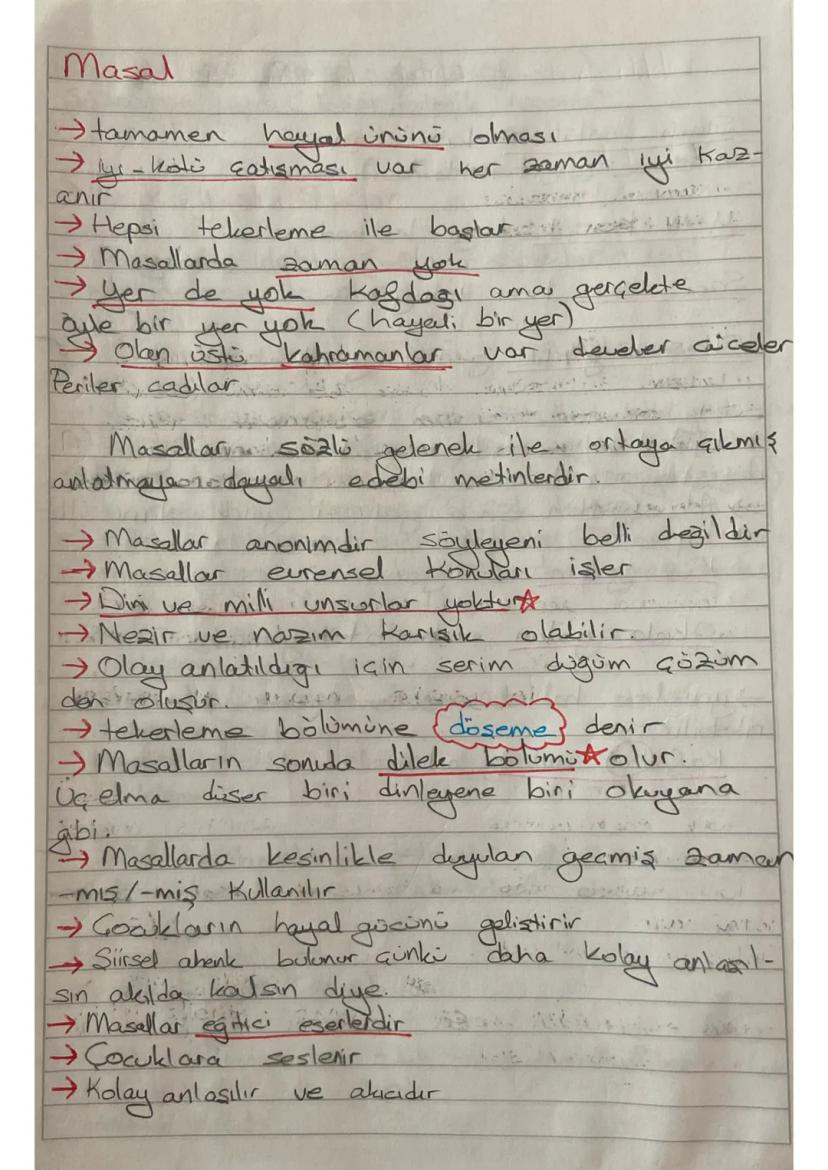 Masal
→ tamamen hayal ürünü olması
→ iyi - kötü çatışması var her zaman iyi kaz-
anır
→ Hepsi tekerleme ile başlar
→ Masallarda zaman yok
→ Yer de yok Kafdağı ama gerçekte
öyle bir yer yok (hayali bir yer)
→ Olan üstü kahramanlar var develer cüceler
Periler, cadılar
Masallar sözlü gelenek ile ortaya çıkmış
anlatmaya dayalı edebi metinlerdir.
→ Masallar anonimdir söyleyeni belli değildir
→ Masallar evrensel konuları işler
→ Dini ve milli unsurlar yoktur☆
→ Nezir ve nazım karışık olabilir.
→ Olay anlatıldığı için serim düğüm çözüm
den oluşur.
→ tekerleme bölümüne döşeme denir
→ Masalların sonuda dilek bölümü☆ olur.
Üç elma düşer biri dinleyene biri okuyana
gibi.
→ Masallarda kesinlikle duyulan geçmiş zaman
-mış/-miş kullanılır
→ Çocukların hayal gücünü geliştirir
→ Şiirsel ahenk bulunur çünkü daha kolay anlaşıl-
sın akılda kalsın diye.
→ Masallar eğitici eserlerdir
→ Çocuklara seslenir
→ Kolay anlaşılır ve akıcıdır